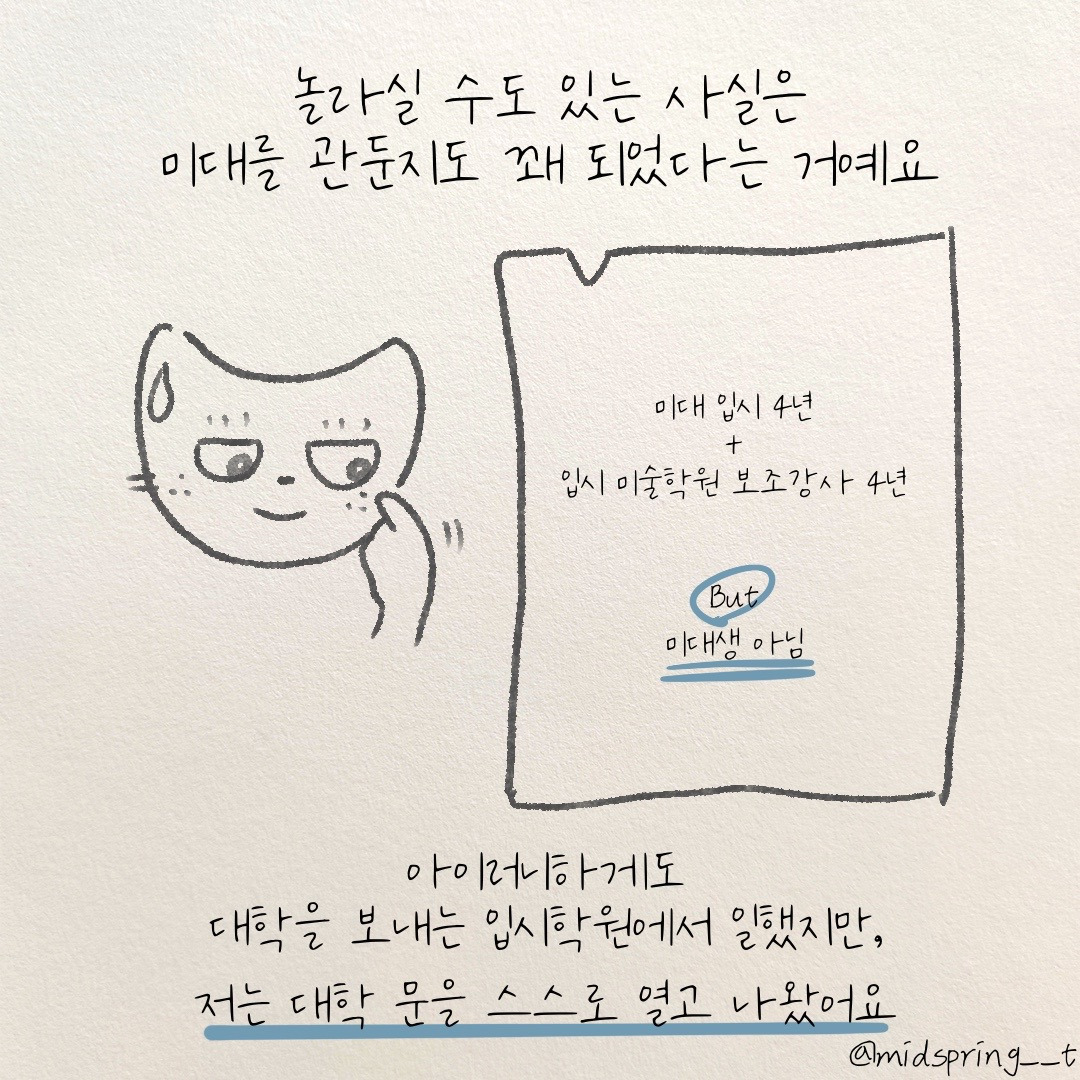 놀라실 수도 있는 사실은
미대를 관둔지도 꽤 되었다는 거예요
미대 입시 4년
+
입시 미술학원 보조강사 4년
But
미대생 아님
아이러니하게도
대학을 보내는 입시학원에서 일했지만,
저는 대학 문을 스스로 열고 나왔어요
@midspring__t